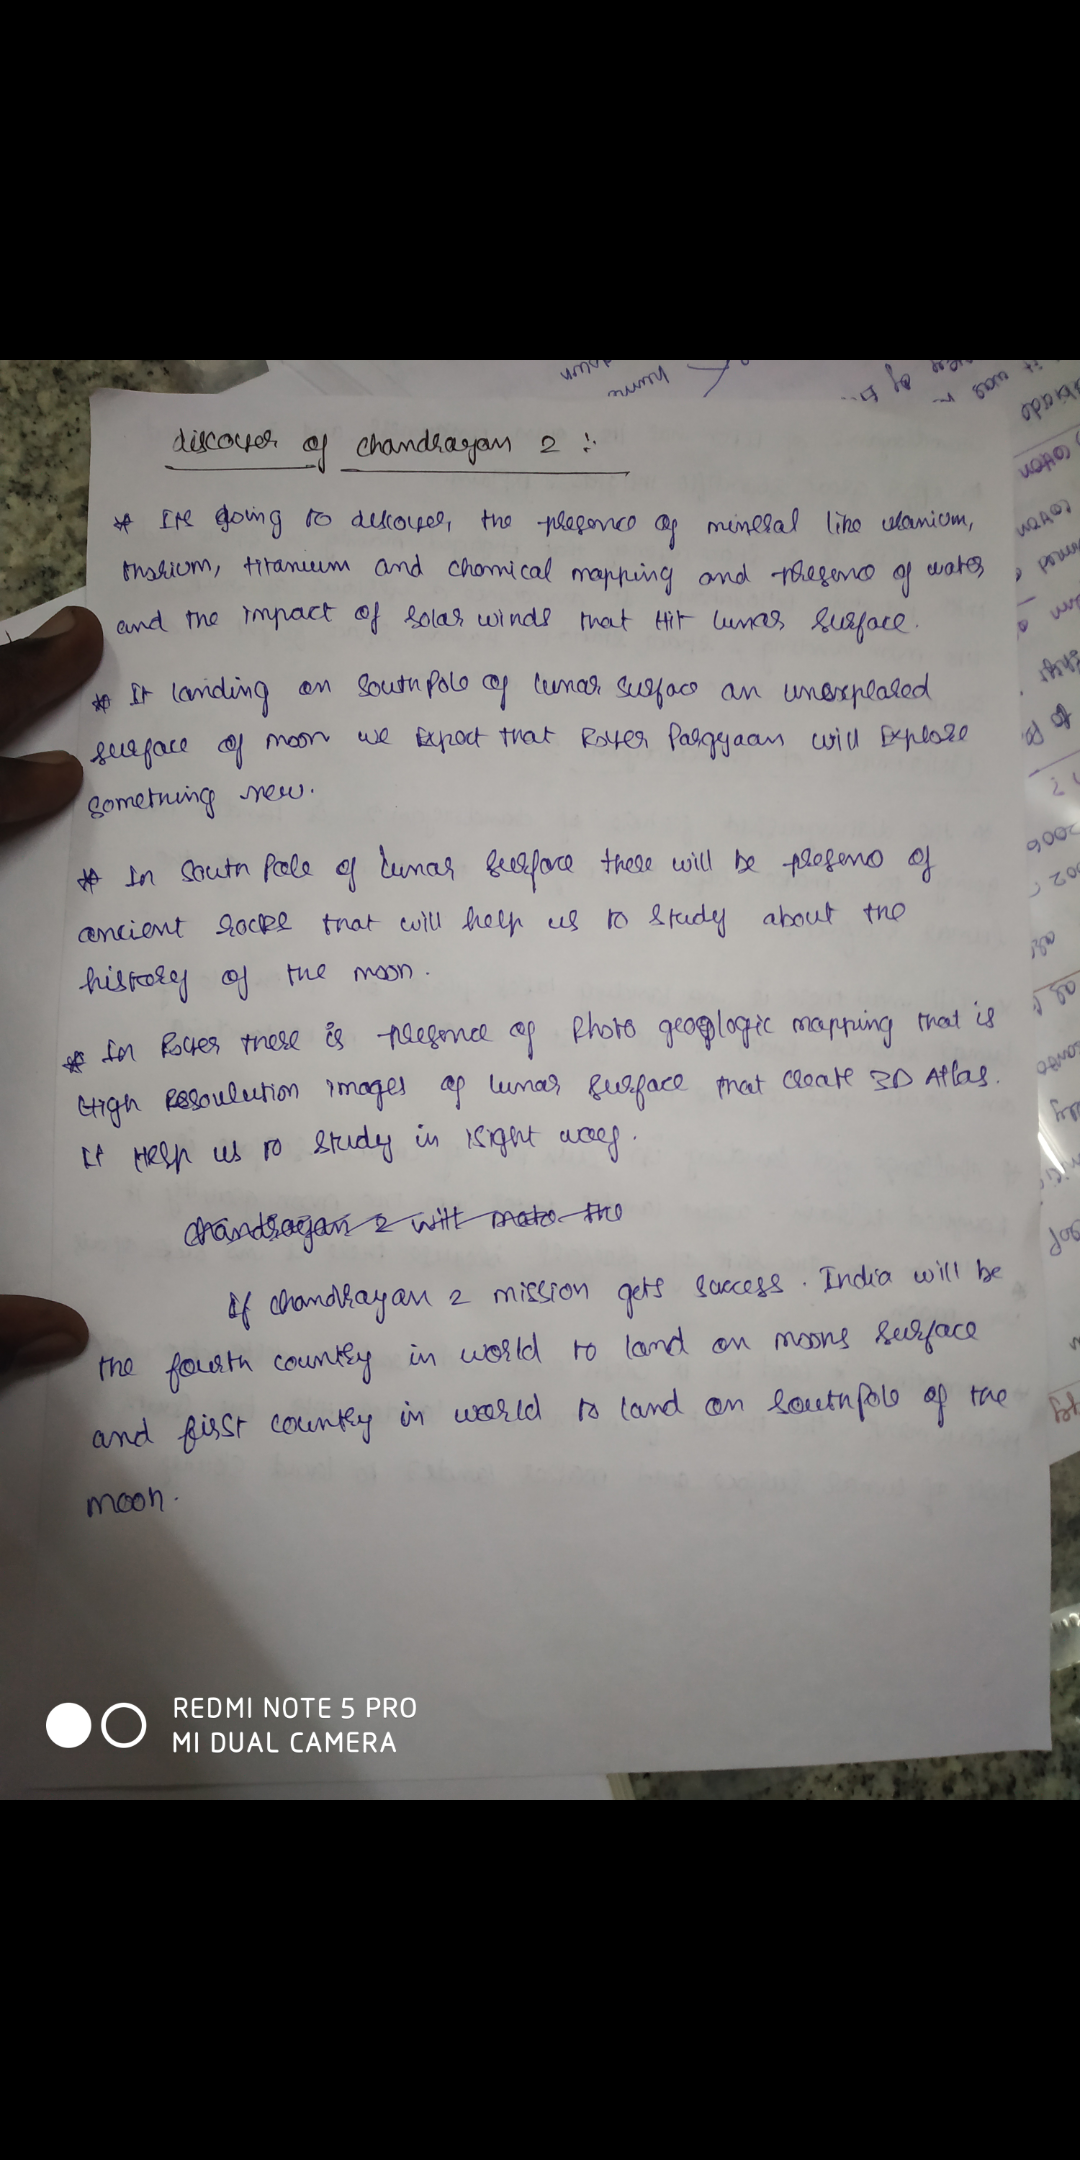 discover of chandrayan 2 :-
* Its going to discover, the presence of mineral like uranium,
thorium, titanium and chemical mapping and presenc of water
and the impact of solar winds that Hit lunar surface.
* It landing on southpole of lunar surface an unexplored
surface of moon we Expect that Rover Pargyaan will Explore
something new.
* In south Pole of lunar surface there will be presenc of
ancient rocks that will help us to study about the
history of the moon.
* In Rover there is presence of Photo geoglogic mapping that is
High Resoulution images of lunar surface that create 3D Atlas.
It Help us to study in right way.
chandrayan 2 will make the
If chandrayan 2 mission gets success. India will be
the fourth country in world to land on moons surface
and first country in world to land on southpole of the
moon.
REDMI NOTE 5 PRO
MI DUAL CAMERA